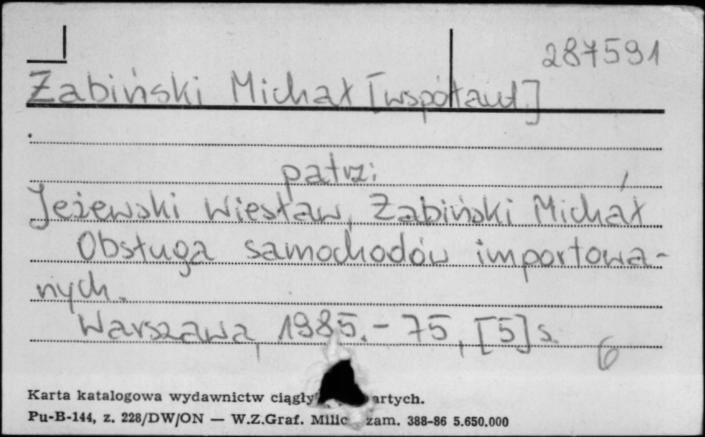 287591
Żabiński Michał [współaut]
patrz:
Jeżewski Wiesław, Żabiński Michał
Obsługa samochodów importowa-
nych.
Warszawa, 1985.- 75, [5] s. 6
Karta katalogowa wydawnictw
Pu-B-144, z. 228/DW/ON — W.Z.Graf. zam. 388-86 5.650.000